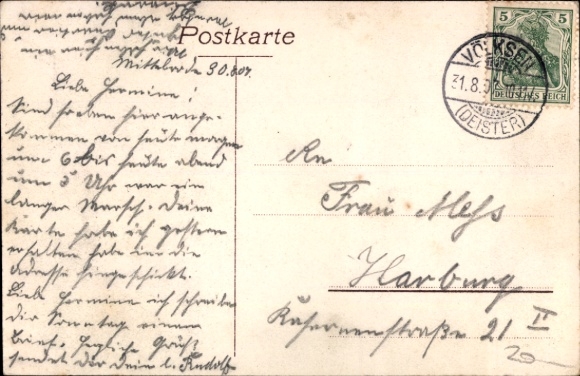 Postkarte
5 5
DEUTSCHES REICH
VÖLKSEN
31.8.
(DEISTER)
Mittelrode 30.8.07.
Liebe Hermine!
Sind soeben hier ange-
kommen von heute morgen
um 6 bis heute abend
um 5 Uhr war ein
langer Marsch. Deine
Karte habe ich gestern
erhalten habe hier die
Adresse hingeschickt.
Liebe Hermine ich schreibe
dir Sonntag einen
Brief. Herzliche Grüße
sendet dir dein l. Rudolf
An
Frau
Harburg
Kasernenstraße 21 II
20